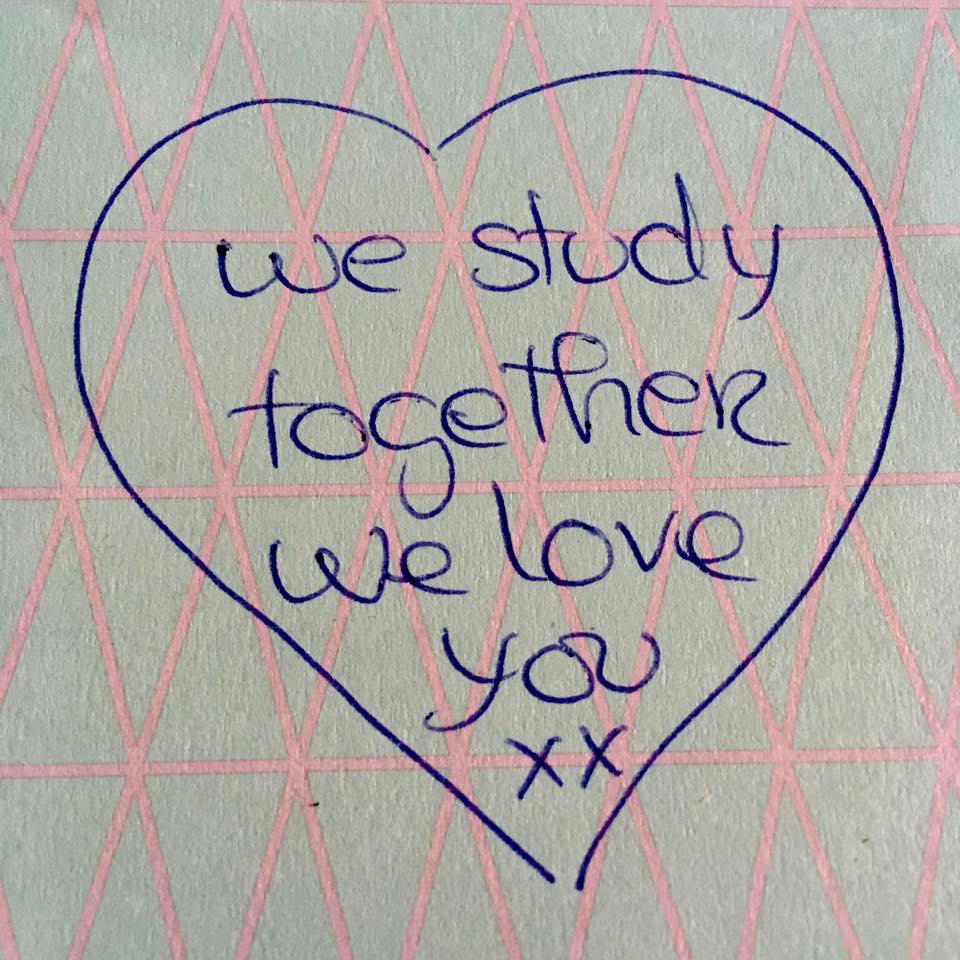 we study
together
we love
you
xx